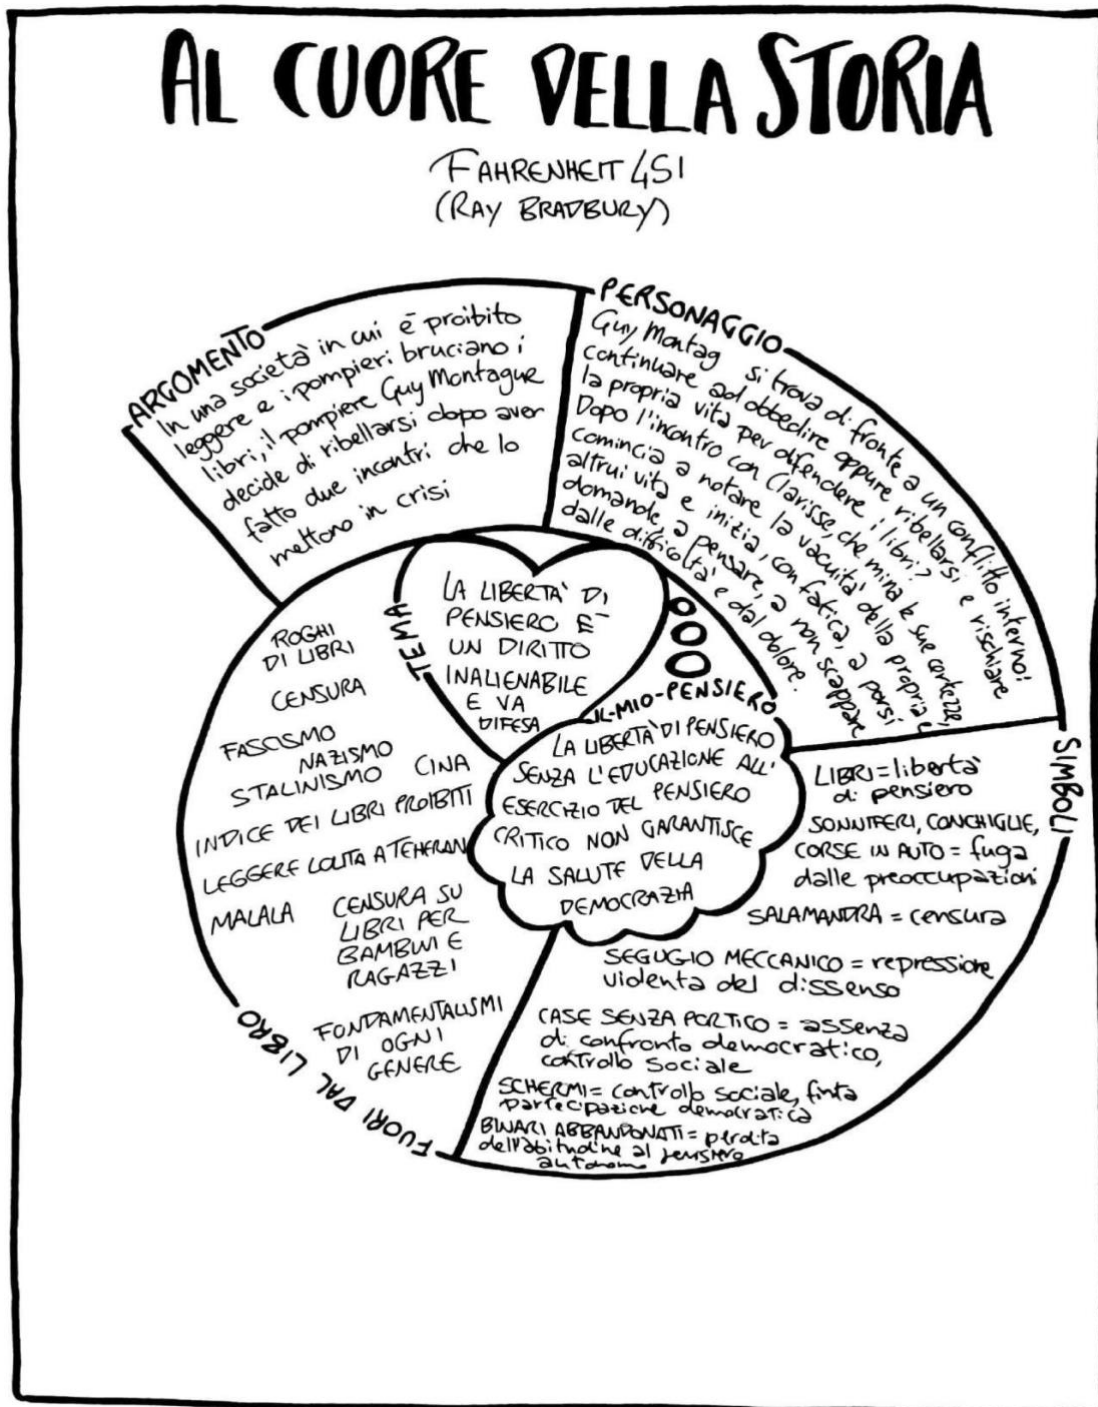 AL CUORE DELLA STORIA
FAHRENHEIT 451
(RAY BRADBURY)
ARGOMENTO
In una società in cui è proibito
leggere e i pompieri bruciano i
libri, il pompiere Guy Montague
decide di ribellarsi dopo aver
fatto due incontri che lo
mettono in crisi
PERSONAGGIO
Guy Montag si trova di fronte a un conflitto interno:
continuare ad obbedire oppure ribellarsi e rischiare
la propria vita per difendere i libri?
Dopo l'incontro con Clarisse, che mina le sue certezze,
comincia a notare la vacuità della propria e
altrui vita e inizia, con fatica, a porsi
domande, a pensare, a non scappare
dalle difficoltà e dal dolore.
TEMA
LA LIBERTA' DI
PENSIERO E'
UN DIRITTO
INALIENABILE
E VA
DIFESA
IL-MIO-PENSIERO
LA LIBERTÀ DI PENSIERO
SENZA L'EDUCAZIONE ALL'
ESERCIZIO DEL PENSIERO
CRITICO NON GARANTISCE
LA SALUTE DELLA
DEMOCRAZIA
SIMBOLI
LIBRI = libertà
di pensiero
SONNIFERI, CONCHIGLIE,
CORSE IN AUTO = fuga
dalle preoccupazioni
SALAMANDRA = censura
SEGUGIO MECCANICO = repressione
violenta del dissenso
CASE SENZA PORTICO = assenza
di confronto democratico,
controllo sociale
SCHERMI = controllo sociale, finta
partecipazione democratica
BINARI ABBANDONATI = perdita
dell'abitudine al pensiero
autonomo
FUORI DAL LIBRO
ROGHI
DI LIBRI
CENSURA
FASCISMO
NAZISMO
STALINISMO CINA
INDICE DEI LIBRI PROIBITI
LEGGERE LOLITA A TEHERAN
MALALA
CENSURA SU
LIBRI PER
BAMBINI E
RAGAZZI
FONDAMENTALISMI
DI OGNI
GENERE